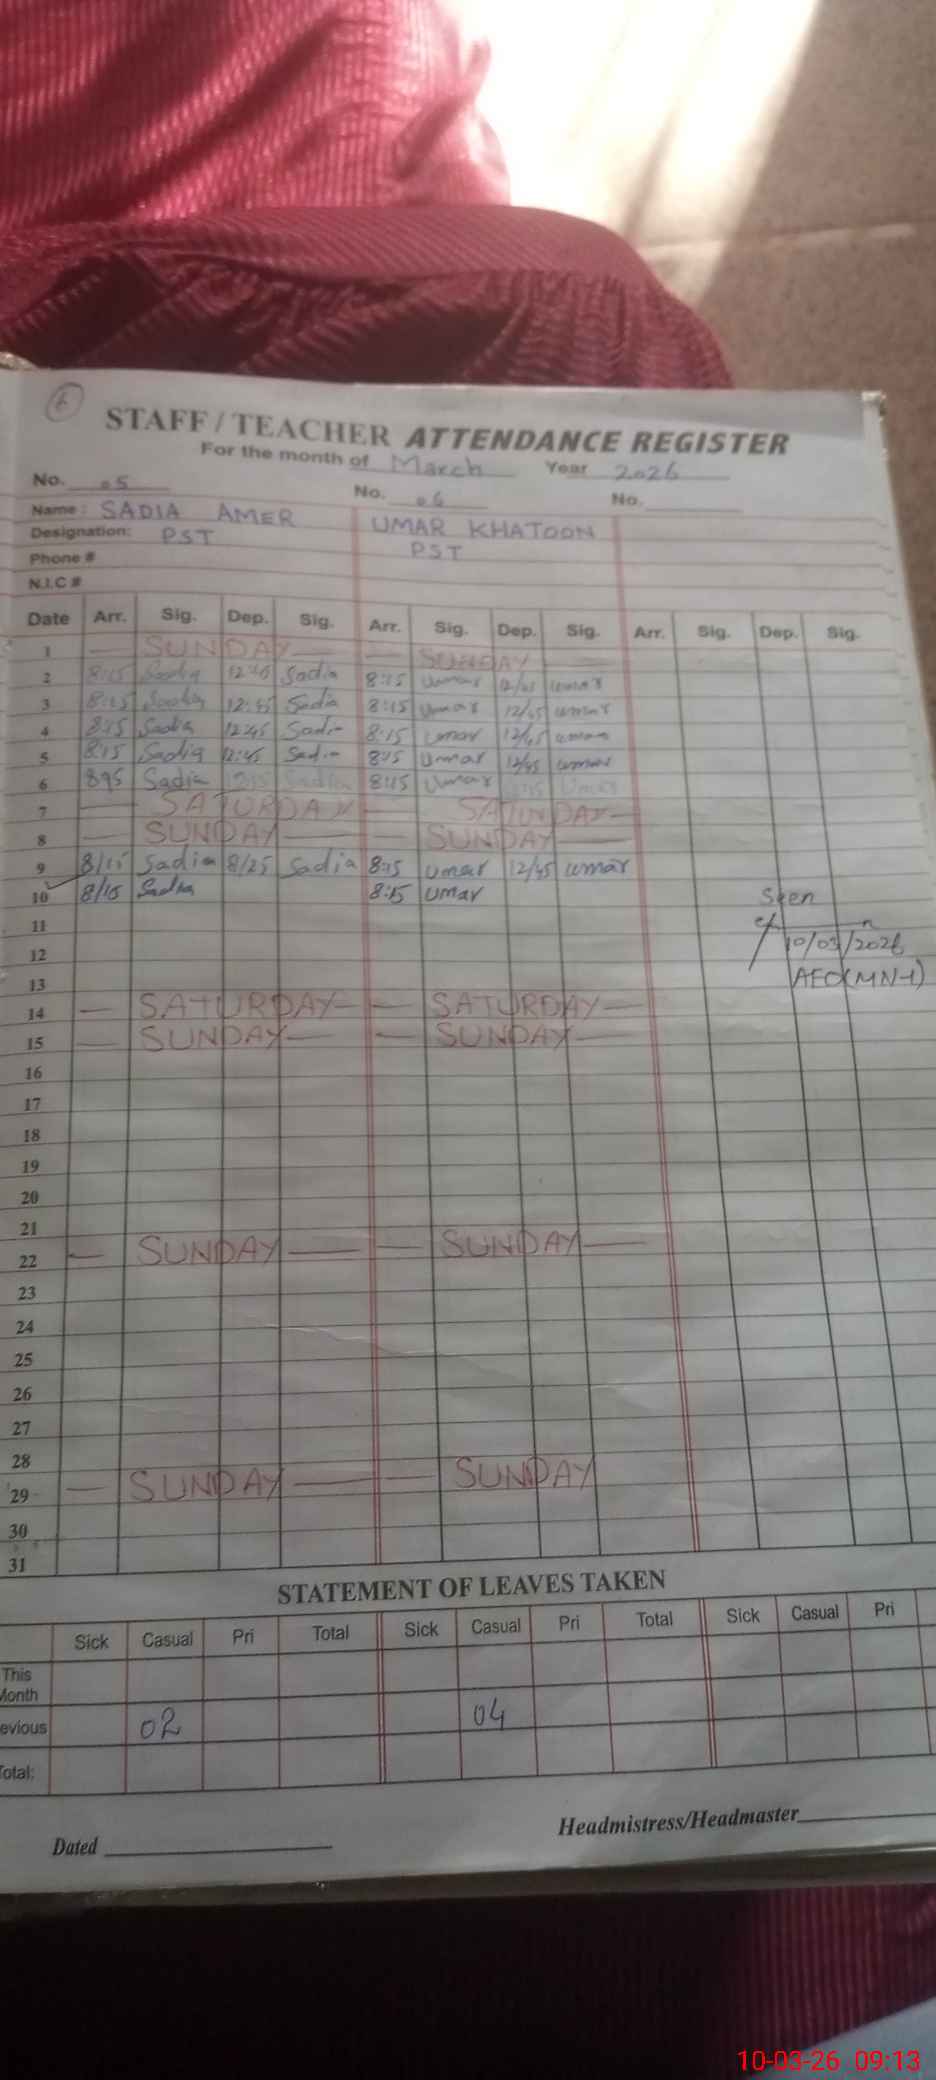 6
STAFF / TEACHER ATTENDANCE REGISTER
For the month of March Year 2026
No. 05 No. 06 No.
Name: SADIA AMER UMAR KHATOON
Designation: PST PST
Phone #
N.I.C #
Date Arr. Sig. Dep. Sig. Arr. Sig. Dep. Sig. Arr. Sig. Dep. Sig.
1 — SUNDAY — — SUNDAY —
2 8:15 Sadia 12:45 Sadia 8:15 umar 12/45 umar
3 8:15 Sadia 12:45 Sadia 8:15 umar 12/45 umar
4 8:15 Sadia 12:45 Sadia 8:15 umar 12/45 umar
5 8:15 Sadia 12:45 Sadia 8:15 umar 12/45 umar
6 Sadia Sadia 8:15 umar umar
7 — SATURDAY — SATURDAY —
8 — SUNDAY — — SUNDAY —
9 8/15 Sadia 8/25 Sadia 8:15 umar 12/45 umar
10 8/15 Sadia 8:15 umar Seen
11
12 10/03/2026
13 AEO(MN-1)
14 — SATURDAY — — SATURDAY —
15 — SUNDAY — — SUNDAY —
16
17
18
19
20
21
22 — SUNDAY — — SUNDAY —
23
24
25
26
27
28
29 — SUNDAY — — SUNDAY
30
31
STATEMENT OF LEAVES TAKEN
Sick Casual Pri Total Sick Casual Pri Total Sick Casual Pri
This
Month
evious 02 04
Total:
Dated Headmistress/Headmaster
10-03-26 09:13